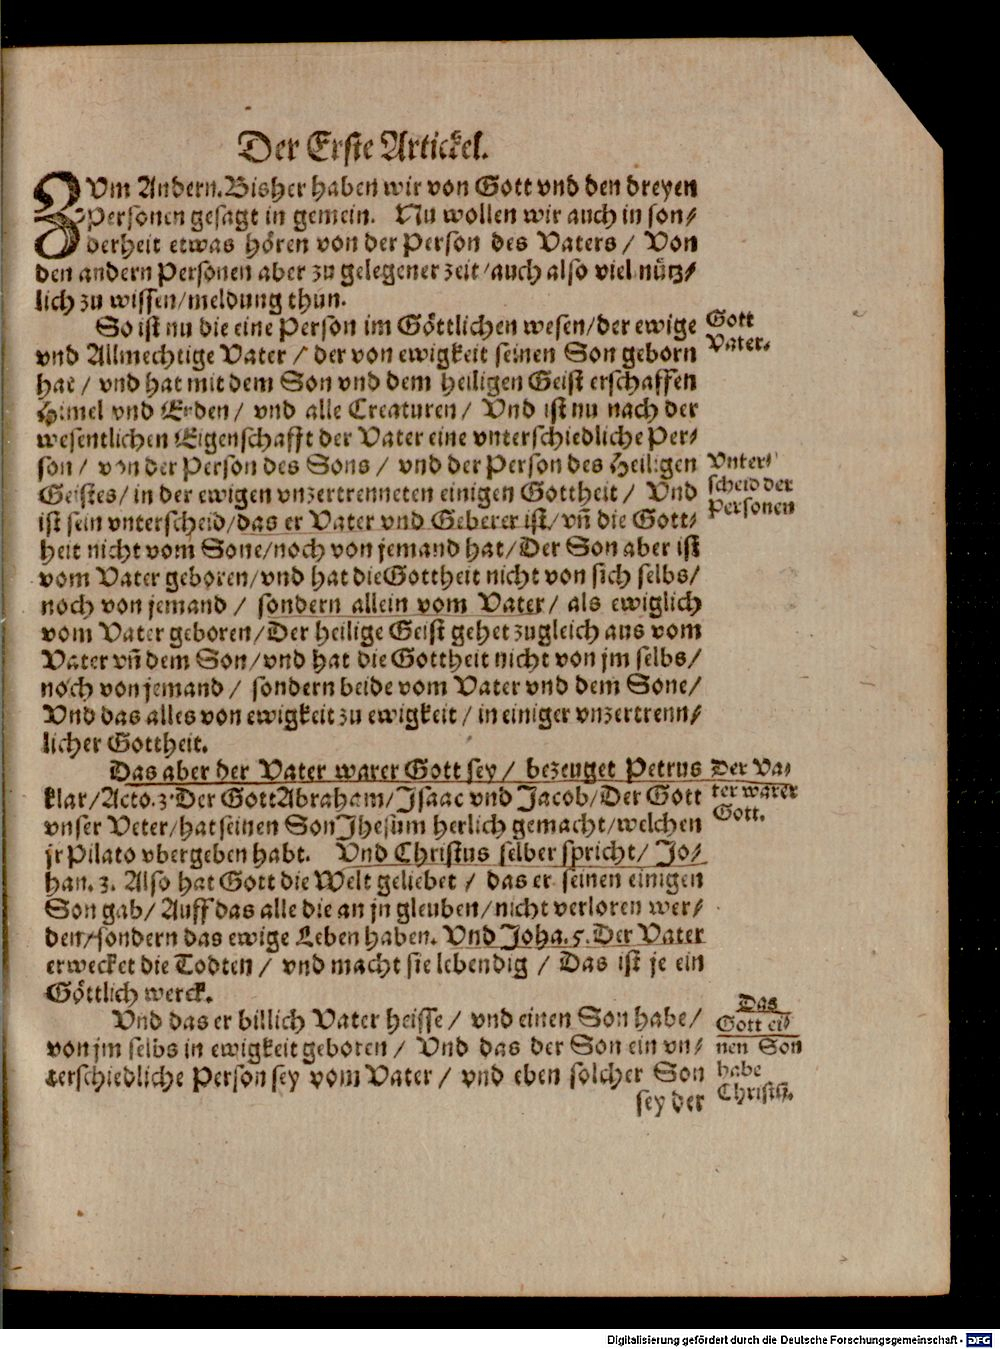 Der Erste Artickel.
ZVm Andern. Bisher haben wir von Gott vnd den dreyen
Personen gesagt in gemein. Nu wollen wir auch in son/
derheit etwas hören von der Person des Vaters / Von
den andern Personen aber zu gelegener zeit / auch also viel nütz/
lich zu wissen / meldung thun.
So ist nu die eine Person im Göttlichen wesen / der ewige
vnd Allmechtige Vater / der von ewigkeit seinen Son geborn
hat / vnd hat mit dem Son vnd dem heiligen Geist erschaffen
Himel vnd Erden / vnd alle Creaturen / Vnd ist nu nach der
wesentlichen Eigenschafft der Vater eine vnterschiedliche Per/
son / von der Person des Sons / vnd der Person des Heiligen
Geistes / in der ewigen vnzertrenneten einigen Gottheit / Vnd
ist sein vnterscheid / das er Vater vnd Geberer ist / vñ die Gott/
heit nicht vom Sone / noch von jemand hat / Der Son aber ist
vom Vater geboren / vnd hat die Gottheit nicht von sich selbs /
noch von jemand / sondern allein vom Vater / als ewiglich
vom Vater geboren / Der heilige Geist gehet zugleich aus vom
Vater vñ dem Son / vnd hat die Gottheit nicht von jm selbs /
noch von jemand / sondern beide vom Vater vnd dem Sone /
Vnd das alles von ewigkeit zu ewigkeit / in einiger vnzertrenn/
licher Gottheit.
Das aber der Vater warer Gott sey / bezeuget Petrus
klar / Acto. 3. Der Gott Abraham / Isaac vnd Jacob / Der Gott
vnser Veter / hat seinen Son Jhesum herlich gemacht / welchen
jr Pilato vbergeben habt. Vnd Christus selber spricht / Jo/
han. 3. Also hat Gott die Welt geliebet / das er seinen einigen
Son gab / Auff das alle die an jn gleuben / nicht verloren wer/
den / sondern das ewige Leben haben. Vnd Joha. 5. Der Vater
erwecket die Todten / vnd macht sie lebendig / Das ist je ein
Göttlich werck.
Vnd das er billich Vater heisse / vnd einen Son habe /
von jm selbs in ewigkeit geboren / Vnd das der Son ein vn/
terschiedliche Person sey vom Vater / vnd eben solcher Son
sey der
Gott
Vater.
Vnter/
scheid der
Personen
Der Va/
ter warer
Gott.
Das
Gott ei/
nen Son
habe
Digitalisierung gefördert durch die Deutsche Forschungsgemeinschaft - DFG